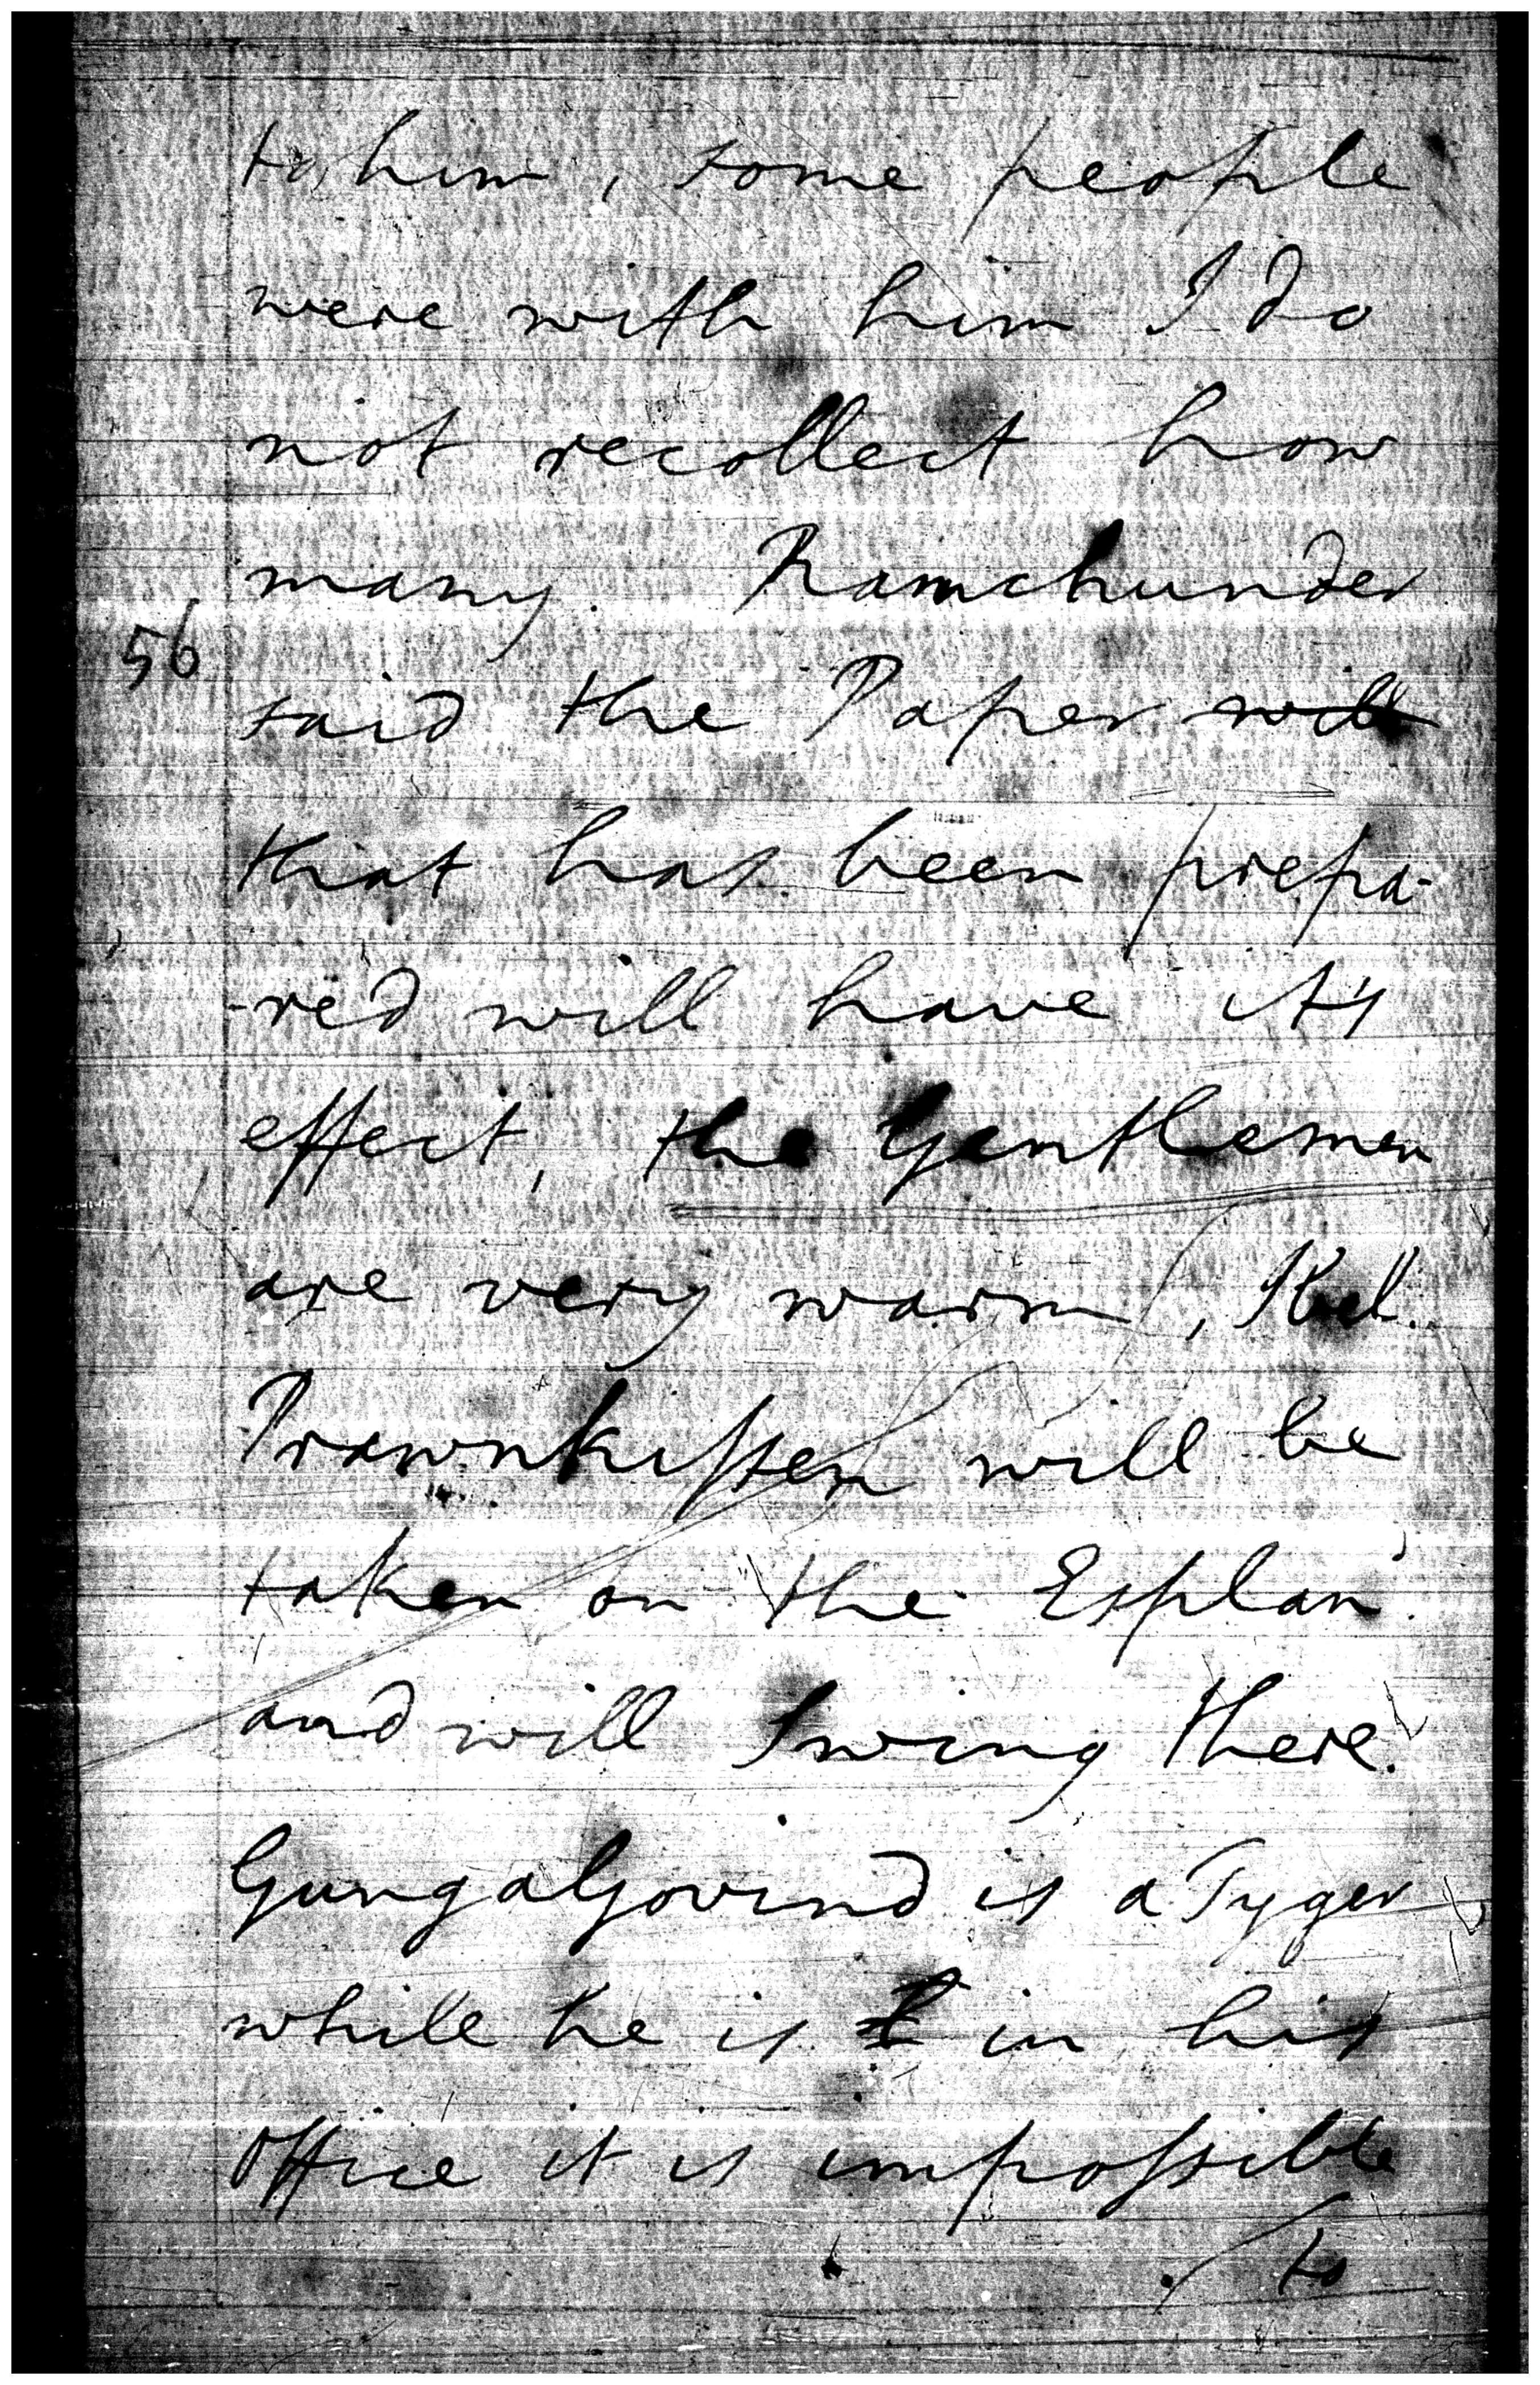 to him, some people
were with him I do
not recollect how
many. Ramchunder
56
said the Paper will
that has been prepa-
-red will have it's
effect, the Gentlemen
are very warm,
Prawnkissen will be
taken on the Esplan
and will Swing there.
Gunga Govind is a Tyger
while he is in his
Office it is impossible
to